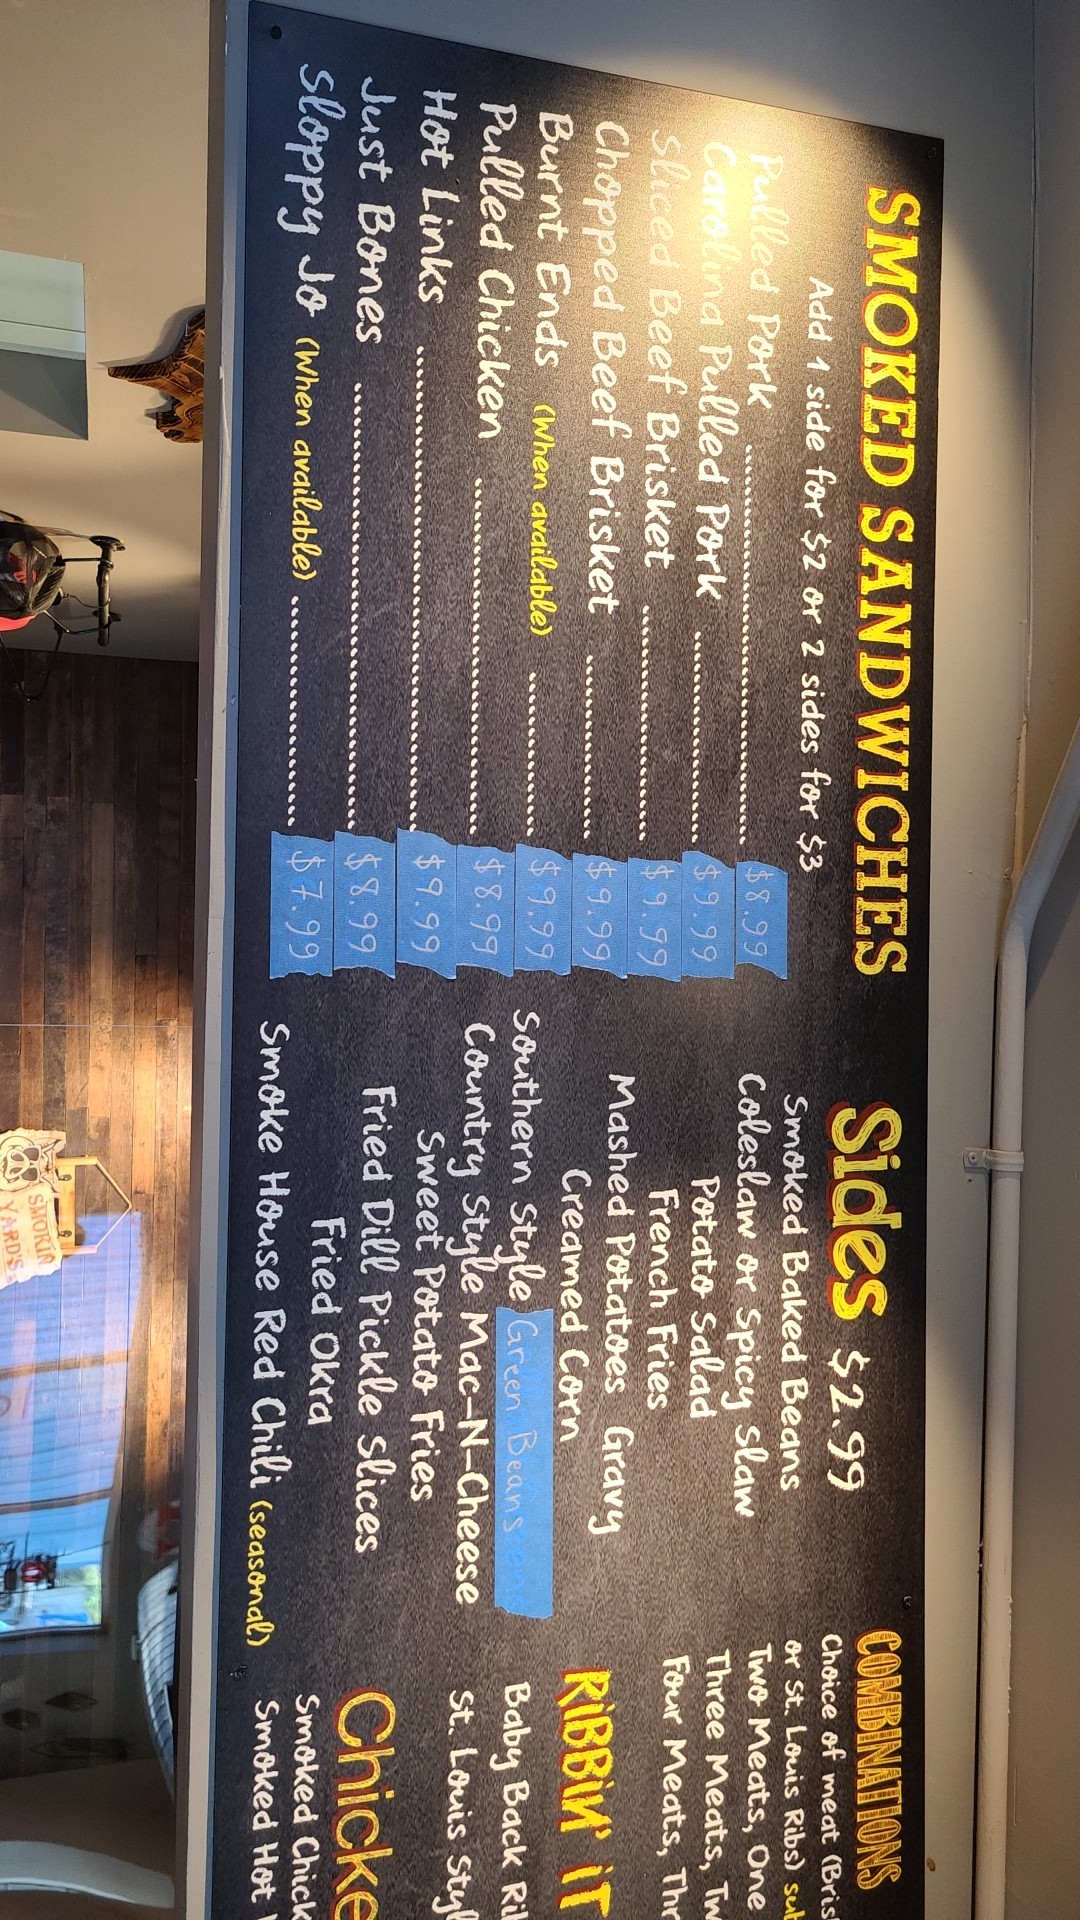 SMOKED SANDWICHES
Add 1 side for $2 or 2 sides for $3
Pulled Pork ........ $8.99
Carolina Pulled Pork ........ $9.99
Sliced Beef Brisket ........ $9.99
Chopped Beef Brisket ........ $9.99
Burnt Ends (When available) ........ $9.99
Pulled Chicken ........ $8.99
Hot Links ........ $9.99
Just Bones ........ $8.99
Sloppy Jo (When available) ........ $7.99
Sides $2.99
Smoked Baked Beans
Coleslaw or Spicy Slaw
Potato Salad
French Fries
Mashed Potatoes Gravy
Creamed Corn
Southern Style Green Beans
Country Style Mac-N-Cheese
Sweet Potato Fries
Fried Dill Pickle Slices
Fried Okra
Smoke House Red Chili (seasonal)
COMBINATIONS
Choice of meat (Bris
or St. Louis Ribs) sub
Two Meats, One
Three Meats, Tw
Four Meats, Thr
RIBBIN' IT
Baby Back Ri
St. Louis Styl
Chicke
Smoked Chick
Smoked Hot
SMOKIN
YARDS